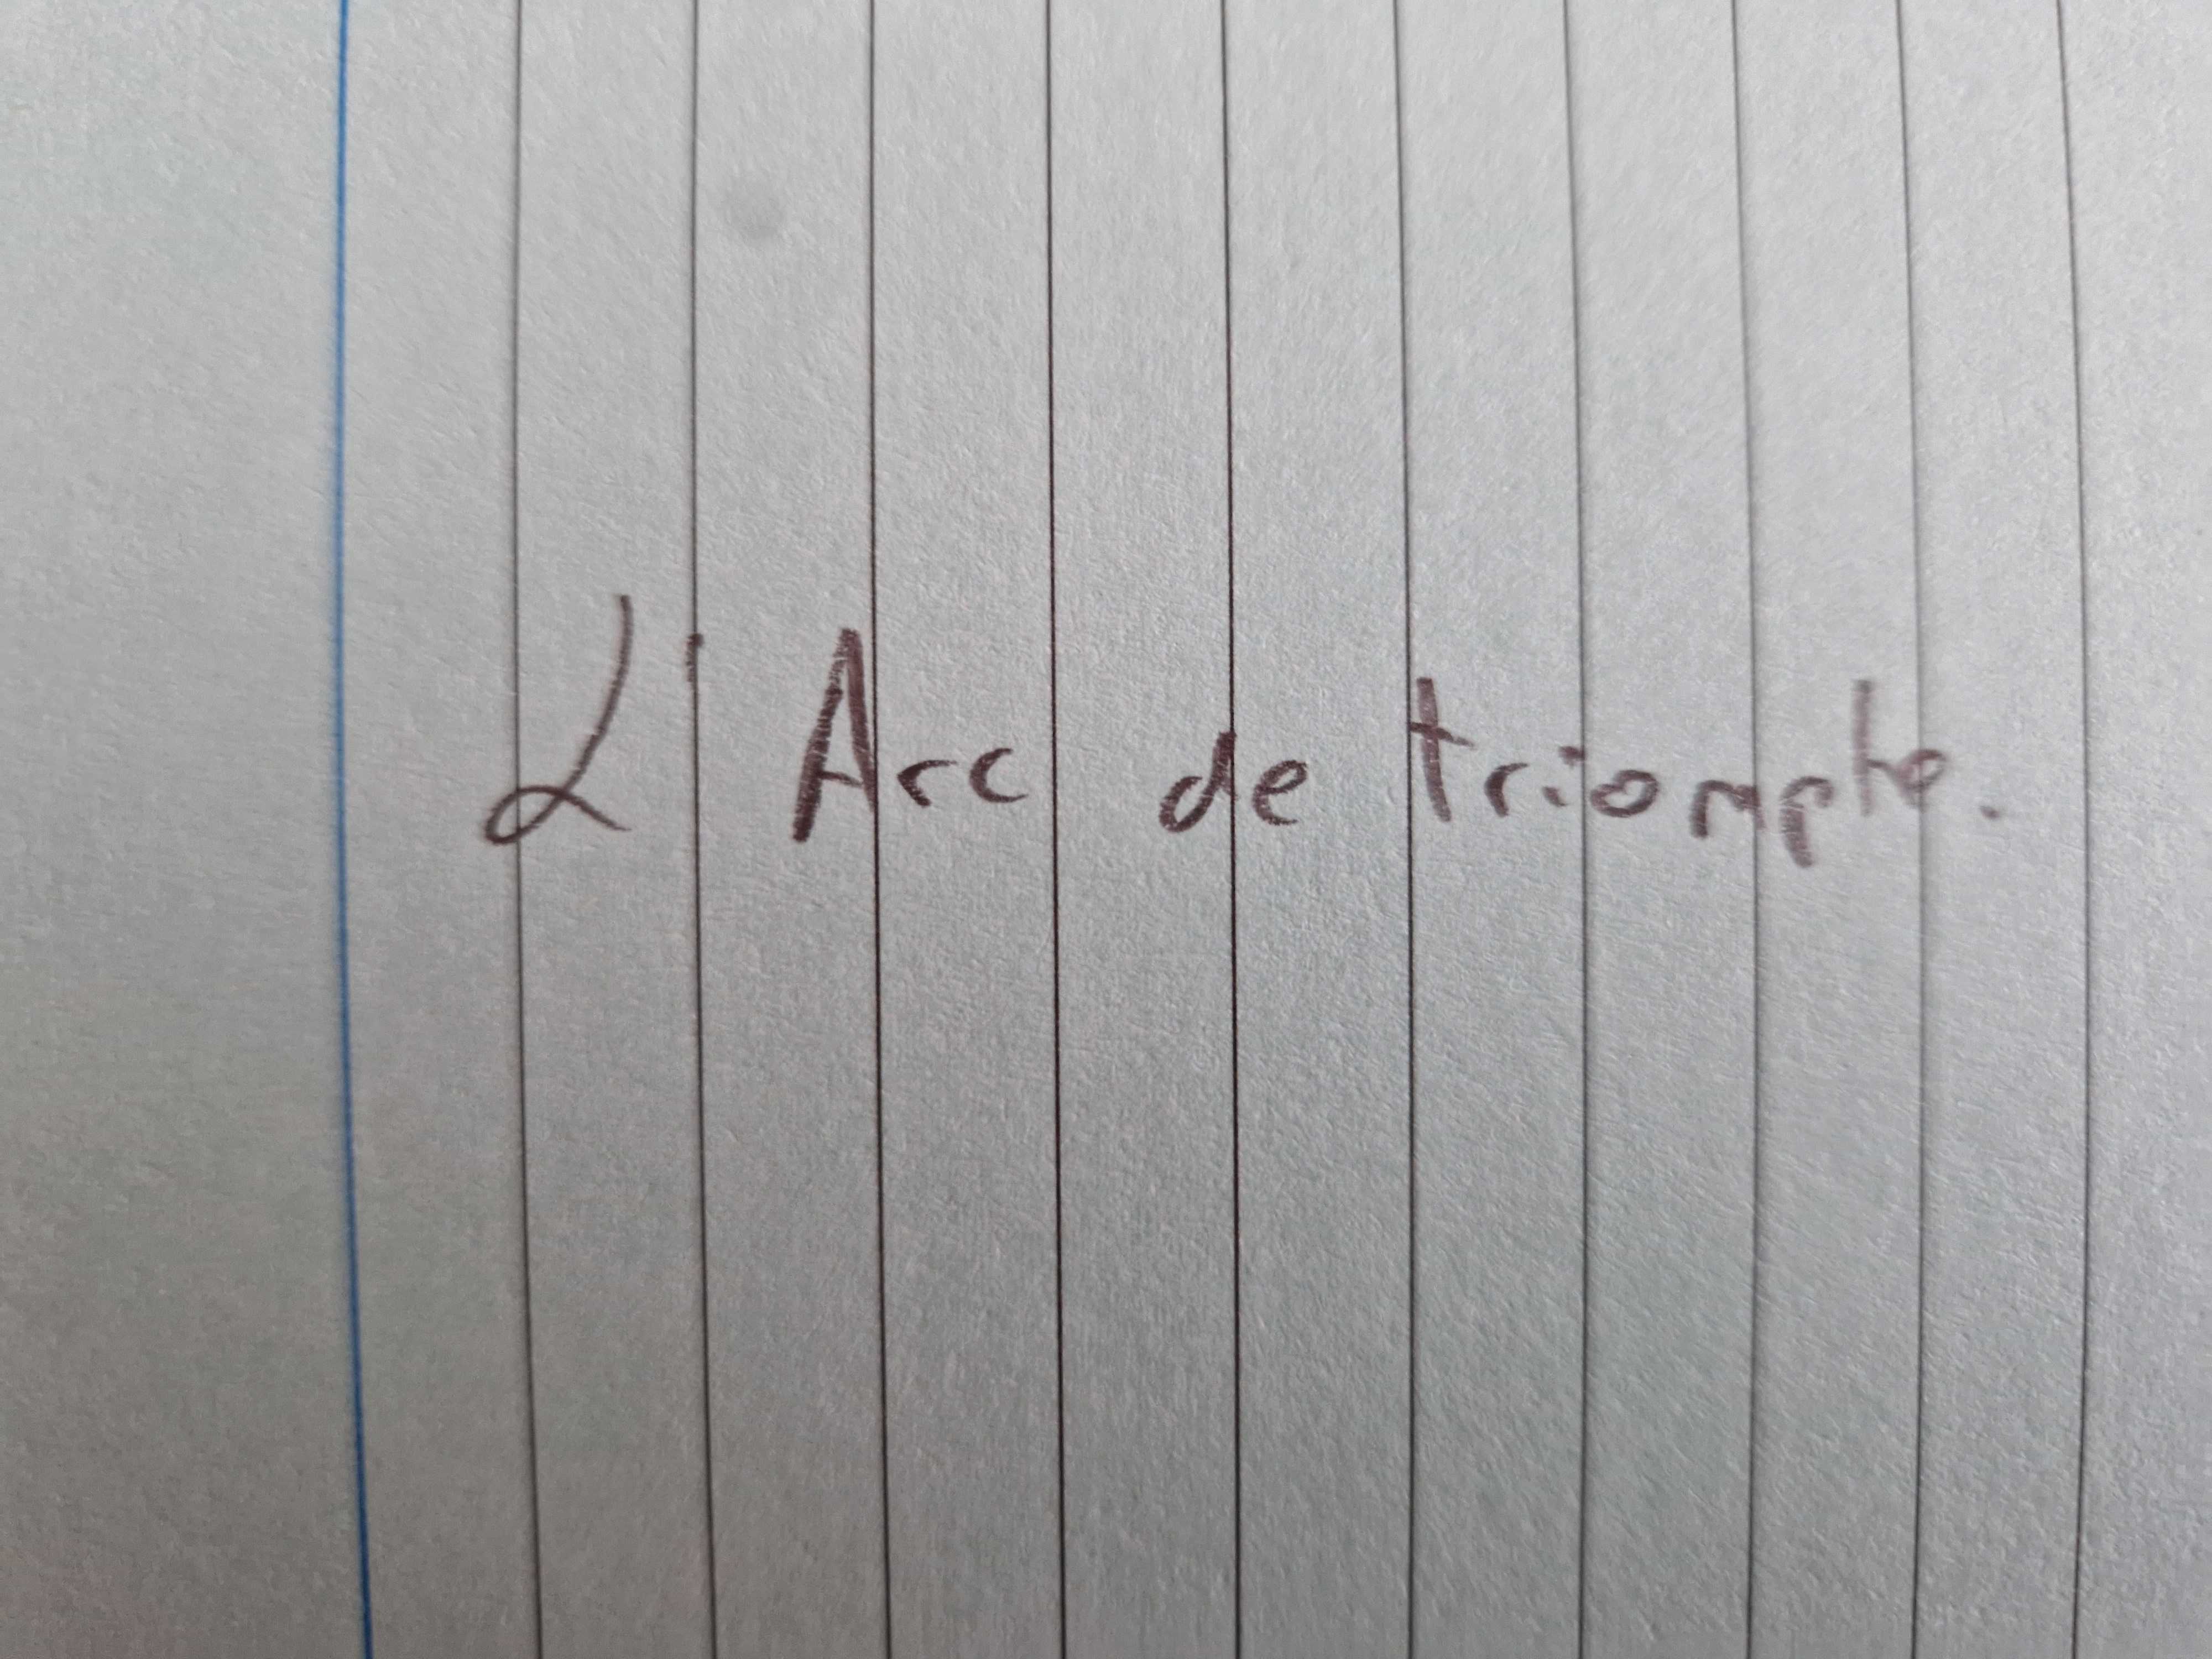 L'Arc de triomphe.